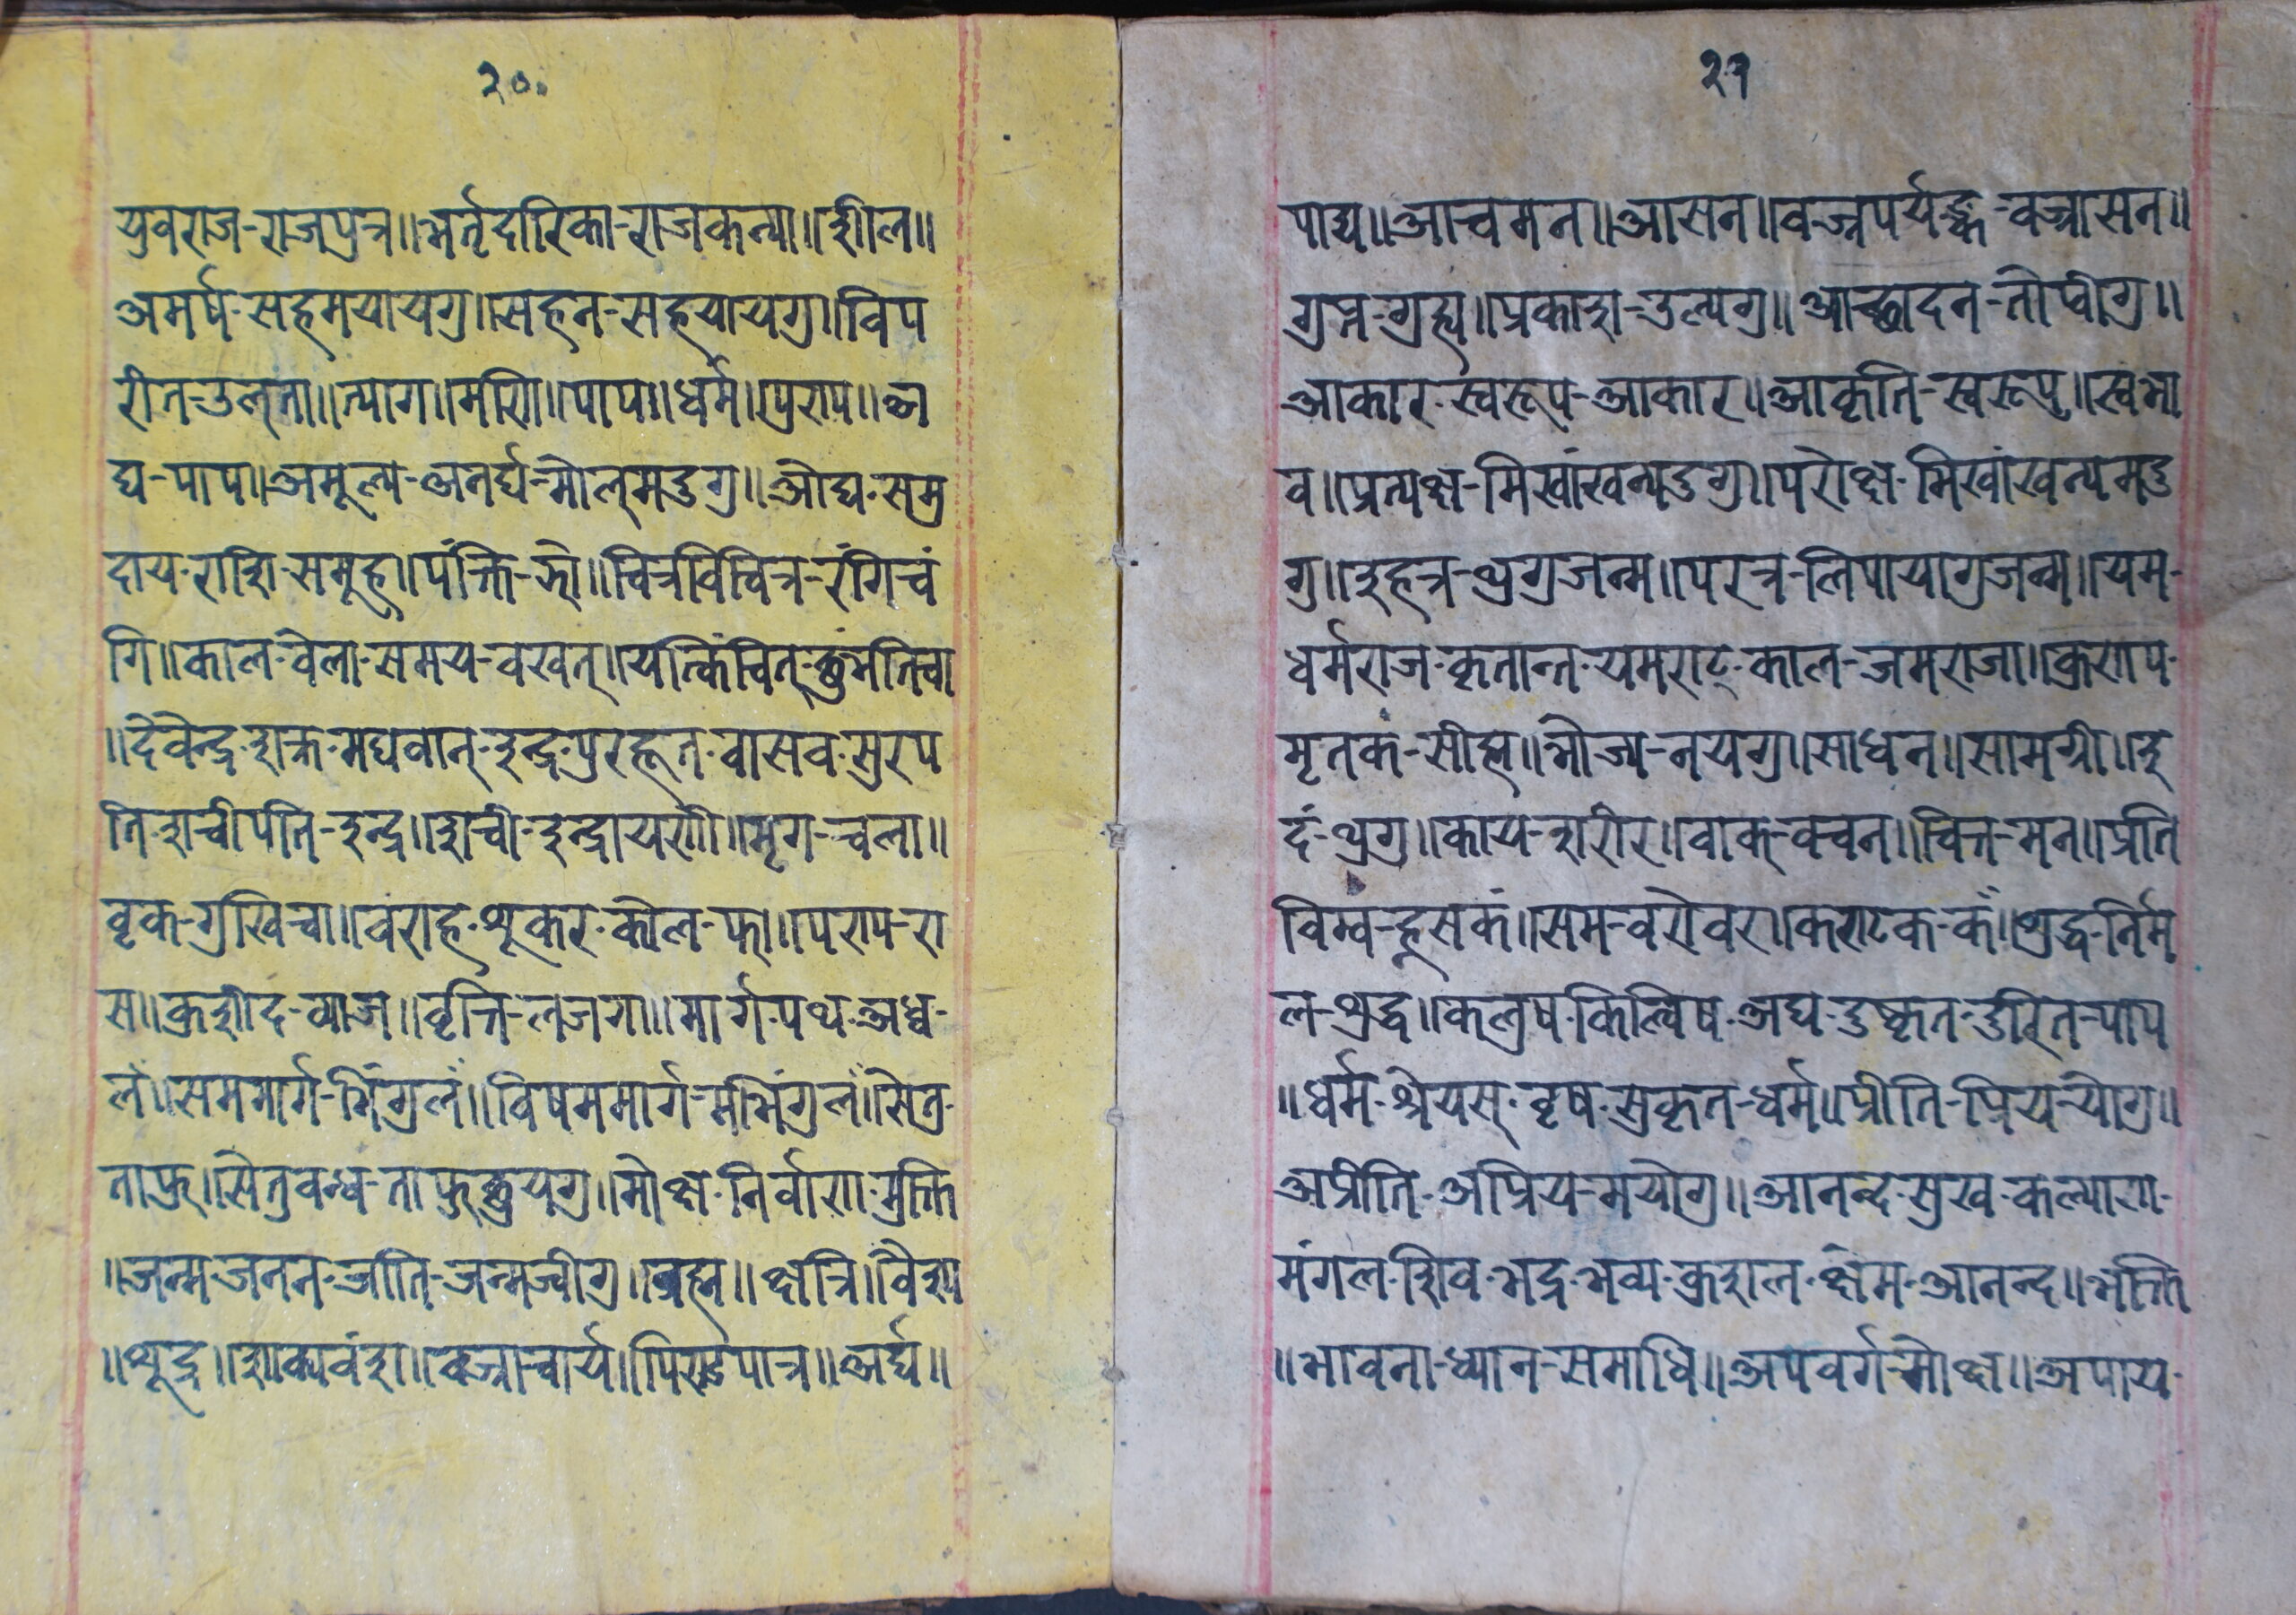 २०
युवराज-राजपुत्र॥भर्तृदारिका-राजकन्या॥शील॥
अमर्ष-सहमयायगु॥सहन-सहयायगु॥विप
रीत-उल्ता॥त्याग॥मणि॥पाप॥धर्म॥पुण्य॥
द्य-पाप॥अमूल्य-अनर्घ-मोल्मडुगु॥ओघ-समु
दाय-राशि-समूह॥पंक्ति-झो॥चित्रविचित्र-रंगिचं
गि॥काल-वेला-समय-वखत्॥यत्किंचित्-छुंभतिचा
॥देवेन्द्र-शक्र-मघवान्-इन्द्र-पुरहूत-वासव-सुरप
ति-शचीपति-इन्द्र॥शची-इन्द्रायणी॥मृग-चला॥
वृक-गुखिचा॥वराह-शूकर-कोल-फा॥पराप-रा
स॥कुशीद-व्याज॥वृत्ति-लजगा॥मार्ग-पथ-अध्व-
लं॥सममार्ग-भिंगुलं॥विषममार्ग-मभिंगुलं॥सेतु-
ताफु॥सेतुवन्ध-ताफुछुयगु॥मोक्ष-निर्वाण-मुक्ति
॥जन्म-जनन-जाति-जन्मज्वीगु॥ब्रह्म॥क्षत्रि॥वैश्य
॥शूद्र॥शाक्यवंश॥वज्राचार्य॥पिण्डपात्र॥अर्घ॥
२१
पाद्य॥आचमन॥आसन॥वज्रपर्यङ्क-वज्रासन॥
गुप्त-गुह्य॥प्रकाश-उल्यगु॥आच्छादन-तोपीगु॥
आकार-स्वरूप-आकार॥आकृति-स्वरूप॥स्वभा
व॥प्रत्यक्ष-मिखांखन्यदुगु॥परोक्ष-मिखांखन्यमदु
गु॥इहत्र-थुगुजन्म॥परत्र-लिपायागुजन्म॥यम-
धर्मराज-कृतान्त-यमराट्-काल-जमराजा॥कुणप-
मृतक-सीह्म॥भोज्य-नयगु॥साधन॥सामग्री॥इ
दं-थुगु॥काय-शरीर॥वाक्-वचन॥चित्त-मन॥प्रति
विम्व-हूसकं॥सम-वरोवर॥कण्टक-कं॥शुद्ध-निर्म
ल-शुद्ध॥कलुष-किल्विष-अघ-दुष्कृत-दुरित-पाप
॥धर्म-श्रेयस्-वृष-सुकृत-धर्म॥प्रीति-प्रिय-योगु॥
अप्रीति-अप्रिय-मयोगु॥आनन्द-सुख-कल्याण-
मंगल-शिव-भद्र-भव्य-कुशल-क्षेम-आनन्द॥भक्ति
॥भावना-ध्यान-समाधि॥अपवर्ग-मोक्ष॥अपाय-